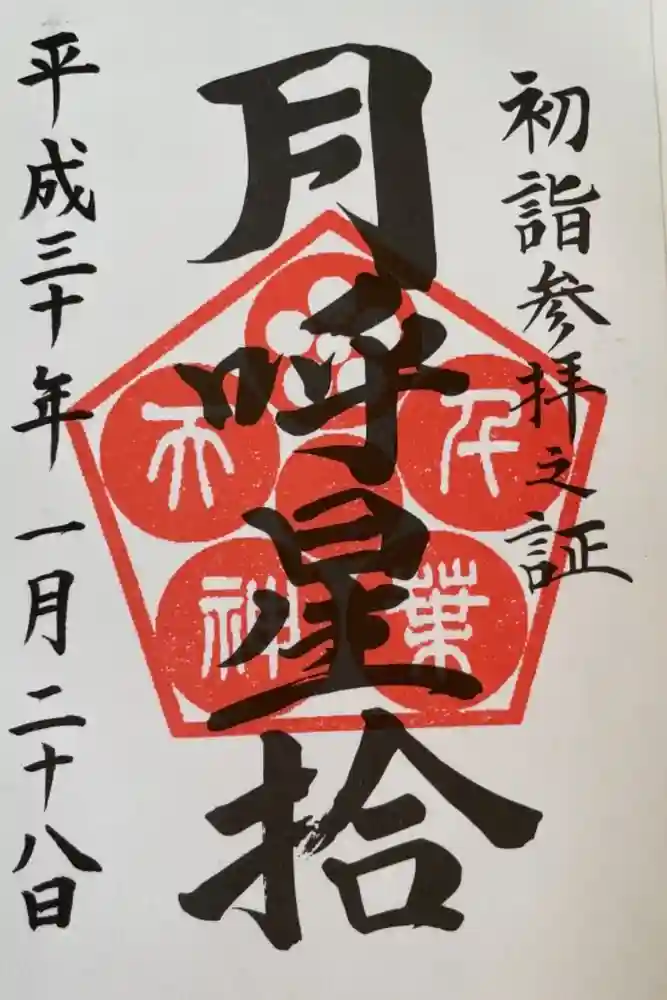 初詣参拝之証
月呼星拾
千葉神天
平成三十年一月二十八日